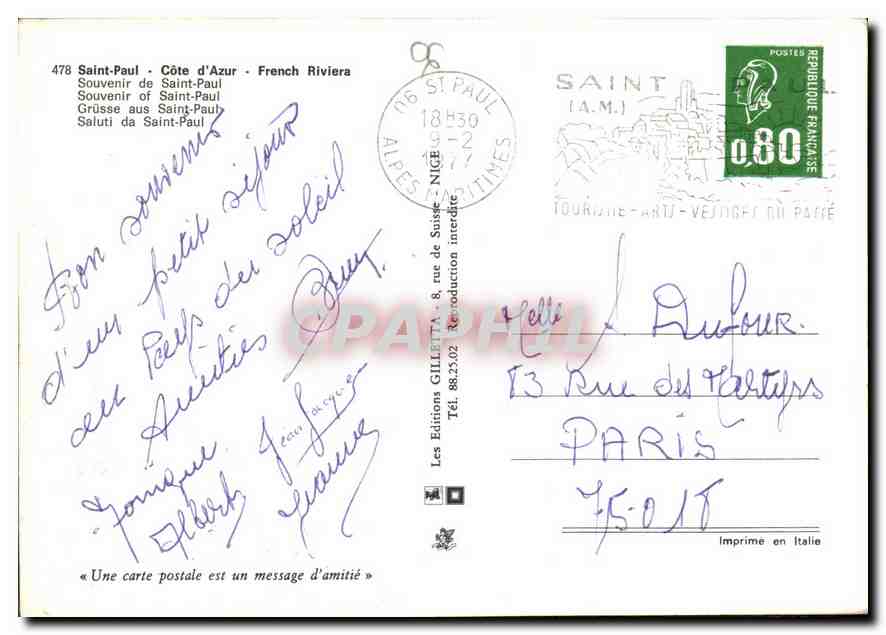 478 Saint-Paul - Côte d'Azur - French Riviera
Souvenir de Saint-Paul
Souvenir of Saint-Paul
Grüsse aus Saint-Paul
Saluti da Saint-Paul
Bon souvenir
d'un petit séjour
au Pays du soleil
Amitiés
Monique
Jean Jacques
Albert
Jeanne
« Une carte postale est un message d'amitié »
Les Editions GILLETTA - 8, rue de Suisse - NICE
Tél. 88.25.02 Reproduction interdite
06 ST PAUL
18H30
9-2
1977
ALPES MARITIMES
SAINT PAUL
(A.M.)
TOURISME - ARTS - VESTIGES DU PASSÉ
POSTES
REPUBLIQUE FRANÇAISE
0,80
Melle Dufour
83 Rue des Martyrs
PARIS
75018
Imprimé en Italie
CPAPHIL